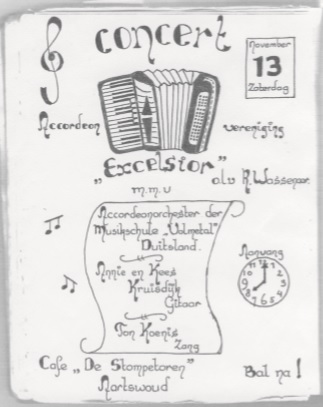 concert
November
13
Zaterdag
Accordeon vereniging
"Excelsior"
o.l.v R. Wassenaar
m.m.v
Accordeonorchester der
Musikschule "Volmetal"
Duitsland.
Annie en Kees
Kruisdijk
Gitaar
Ton Koenis
Zang
Aanvang
12
1
2
3
4
5
6
7
8
9
10
11
Cafe "De Stompetoren"
Aartswoud
Bal na!